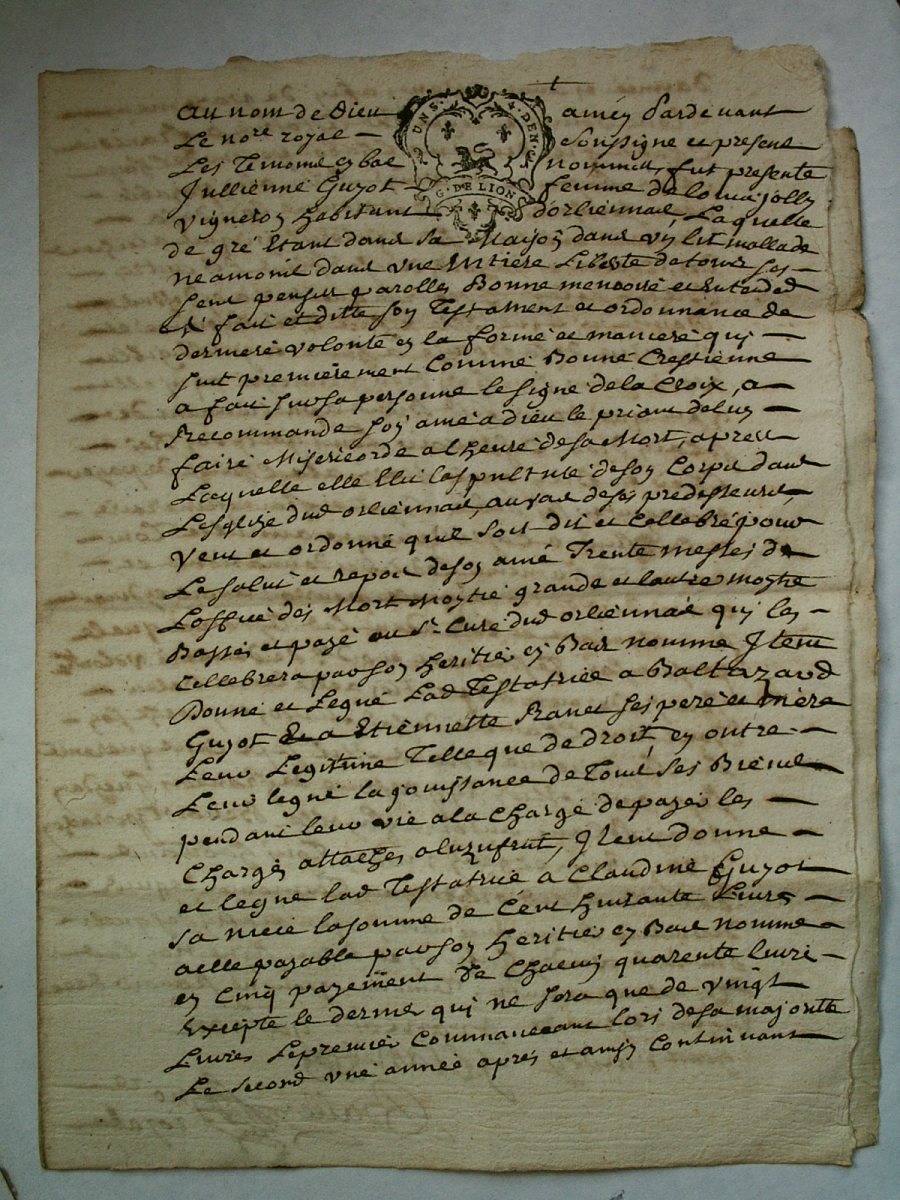 au nom de Dieu amen Pardevant
Le no.re royal soussigne et present
Les Temoins en bas nommes, fut presente
Jullienne Guyot femme de Jolly
UNS. 4 DEN.
G. DE LION
vigneron habitant d'orliennas, Laquelle
de gré Etant dans sa Maison dans un lit mallade
neamoins dans vne Entiere Liberte de tous ses
sens pensees parolles Bonne memoire et Entended
a fait et ditte son Testament et ordonnance de
derniere volonte en la forme et maniere qui
suit premierement Comme Bonne Crestienne
a fait sur sa personne le signe de la Croix, a
Recommande son ame a dieu le priant de luy
faire Misericorde a l heure de sa Mort, apres
Laquelle elle Elit la spulture de son Corps dans
L'esglize dud orliennas, au vas de ses predesseurs,
Veut et ordonne quil soit dit et Cellebré pour
Le salut et repos de son ame Trente messes de
L'offise des Mort Moytie grande et lautre moytie
Basses et payé au Sr. Curé dud orliennas qui les
Cellebrera par son heritier en Bas nomme Item
Donne et Legue Lad Testatrice a Baltazard
Guyot Et a Etiennette Ranet ses pere et mere
Leur Legitime Telle que de droit en outre
Leur legue la jouissance de Tous ses Biens
pendant leur vie a la Charge de payer les
Charges attachés a luzufruit, Item donne
et legue lad Testatrice a Claudine Guyot
sa niece la somme de Cent huitante Livres
a elle payable par son heritier en Bas nomme
en Cinq payement de Chacun quarente livres
Excepte le dernier qui ne sera que de vingt
Livres Le premier Commancant lors de sa majorite
Le second vne année apres et ainsy Continuant